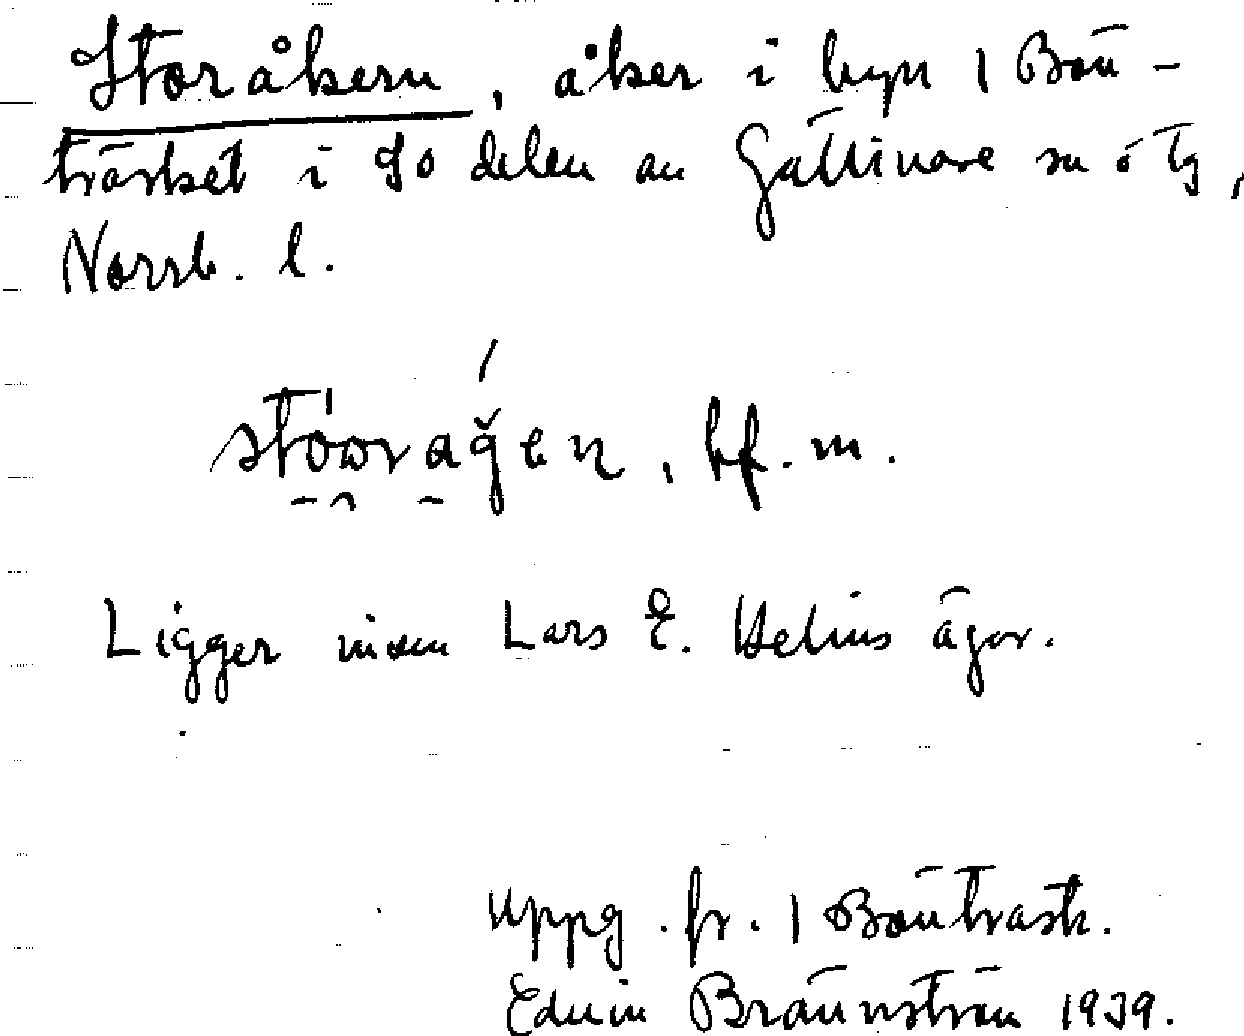 Storåkern, åker i byn 1 Bön-
träsket i So delen av Gällivare sn o tg,
Norrb. l.
Ligger inom Lars E. Helins ägor.
Uppg. fr. 1 Bönträsk.
Edvin Brännström 1939.